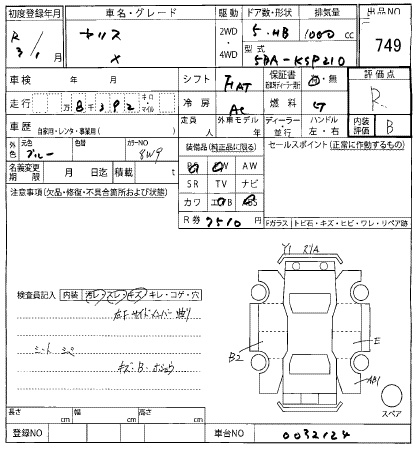 初度登録年月 車名・グレード 駆動 ドア数・形状 排気量 出品NO
R 3/1月 ヤリス X 2WD・4WD 5・HB 1000cc 749
型式 5BA-KSP210
車検 年 月 シフト FAT 保証書 有・無 評価点 R
走行 万8千392 キロ・マイル 冷房 AC 燃料 ガ
車歴 自家用・レンタ・事業用( ) 定員 人 外車モデル 年 ディーラー・並行 ハンドル 左・右 内装評価 B
外色 元色 ブルー 色替 カラーNO 8W9 装備品(純正品に限る) セールスポイント(正常に作動するもの)
名義変更期限 月 日迄 積載 t PS PW AW
SR TV ナビ
注意事項(欠品・修復・不具合箇所および状態) カワ エアB ABS
R券 7510円 Fガラス トビ石・キズ・ヒビ・ワレ・リペア跡
Y1 21A
検査員記入 内装 汚レ・スレ・キズ・キレ・コゲ・穴
右Fサイドメンバー曲り
シート シミ B2 E
キズ・B・ホシュウ AB1
スペア
長さ cm 幅 cm 高さ cm
登録NO 車台NO 0032124